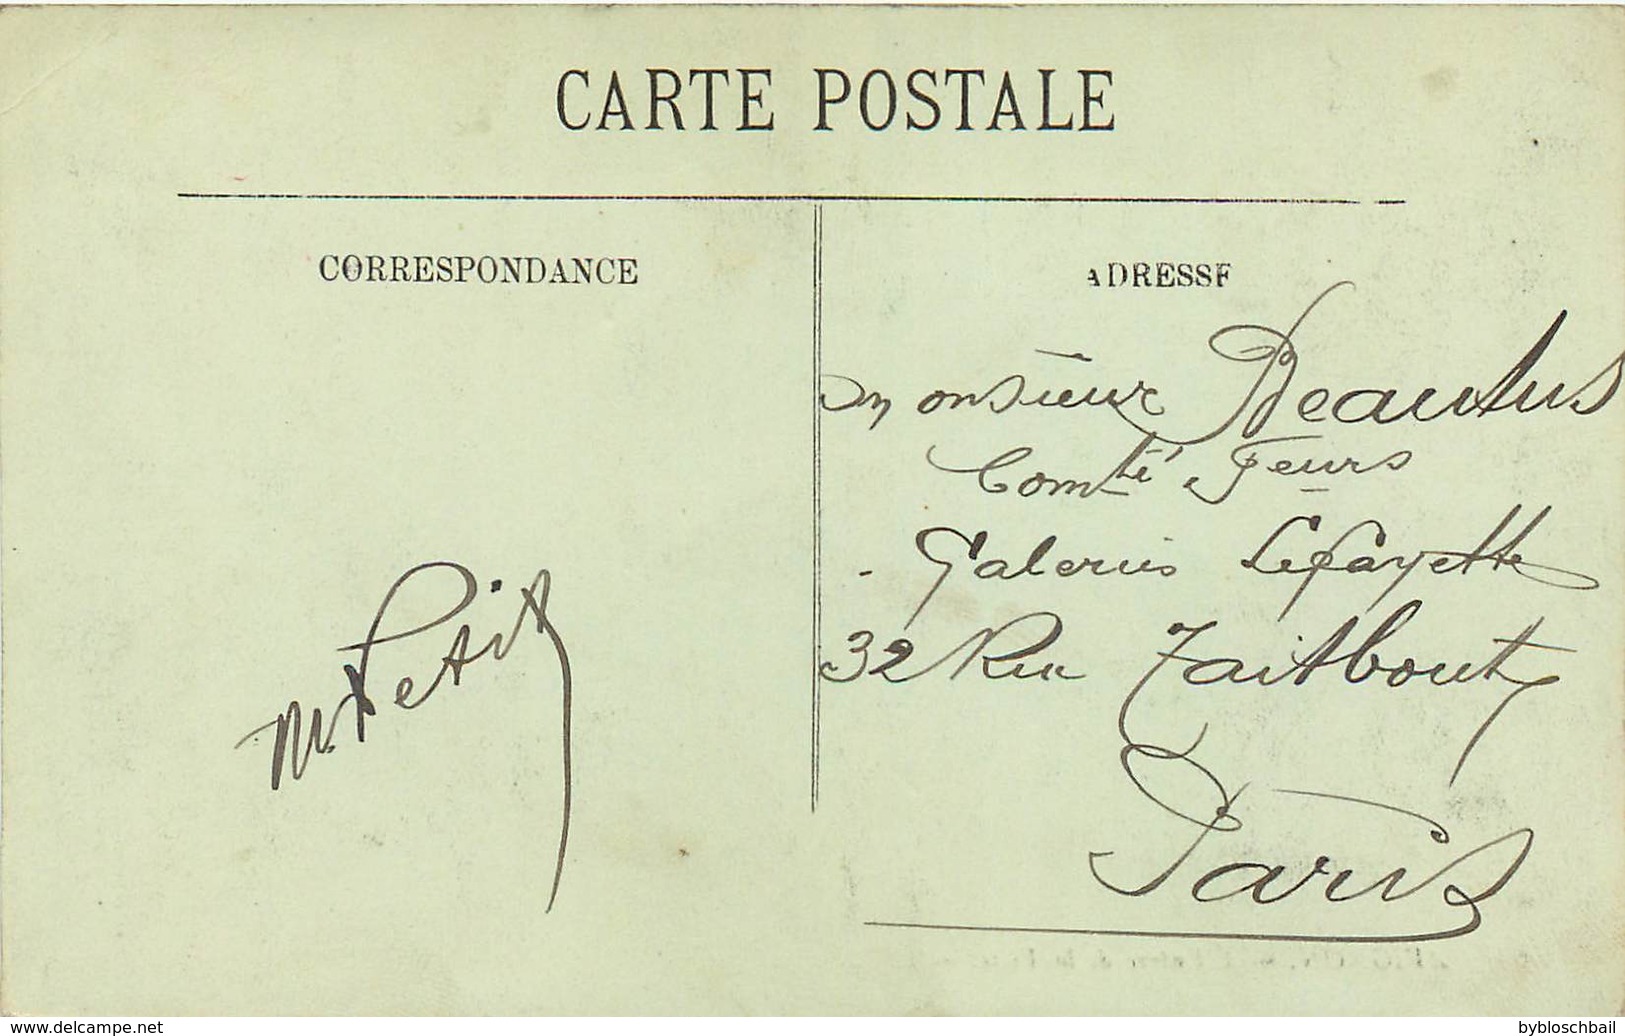 CARTE POSTALE
CORRESPONDANCE
ADRESSE
Monsieur Beautus
Comté Feurs
Galeries Lafayette
32 Rue Taitbout
Paris
M. Petit
www.delcampe.net
bybloschbail